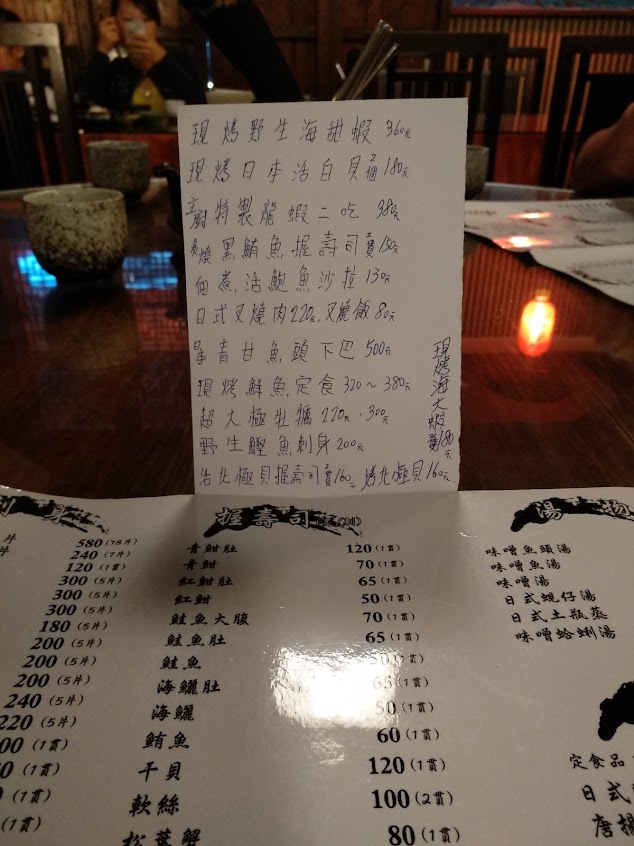 現烤野生海甜蝦 360元
現烤日本活白貝1個180元
主廚特製龍蝦二吃 380元
炙燒黑鮪魚握壽司1貫150元
佃煮活鮑魚沙拉130元
日式叉燒肉220元.叉燒飯80元
青甘魚頭下巴500元
現烤鮮魚定食320～380元
超大極牡蠣220元.300元
野生鰹魚刺身200元
活北極貝握壽司1貫160元 烤北極貝160元
現烤海大蝦1貫180元
刺身
580(18片)
240(7片)
120(1貫)
300(5片)
300(5片)
300(5片)
180(5片)
200(5片)
200(5片)
200(5片)
240(5片)
220(5片)
(1貫)
(1貫)
(1貫)
(1貫)
握壽司
青魽肚 120(1貫)
青魽 70(1貫)
紅魽肚 65(1貫)
紅魽 50(1貫)
鮭魚大腹 70(1貫)
鮭魚肚 65(1貫)
鮭魚 50(1貫)
海鱺肚 65(1貫)
海鱺 50(1貫)
鮪魚 60(1貫)
干貝 120(1貫)
軟絲 100(2貫)
松葉蟹 80(1貫)
湯
味噌魚頭湯
味噌魚湯
味噌湯
日式蜆仔湯
日式土瓶蒸
味噌蛤蜊湯
定食品
日式
唐揚